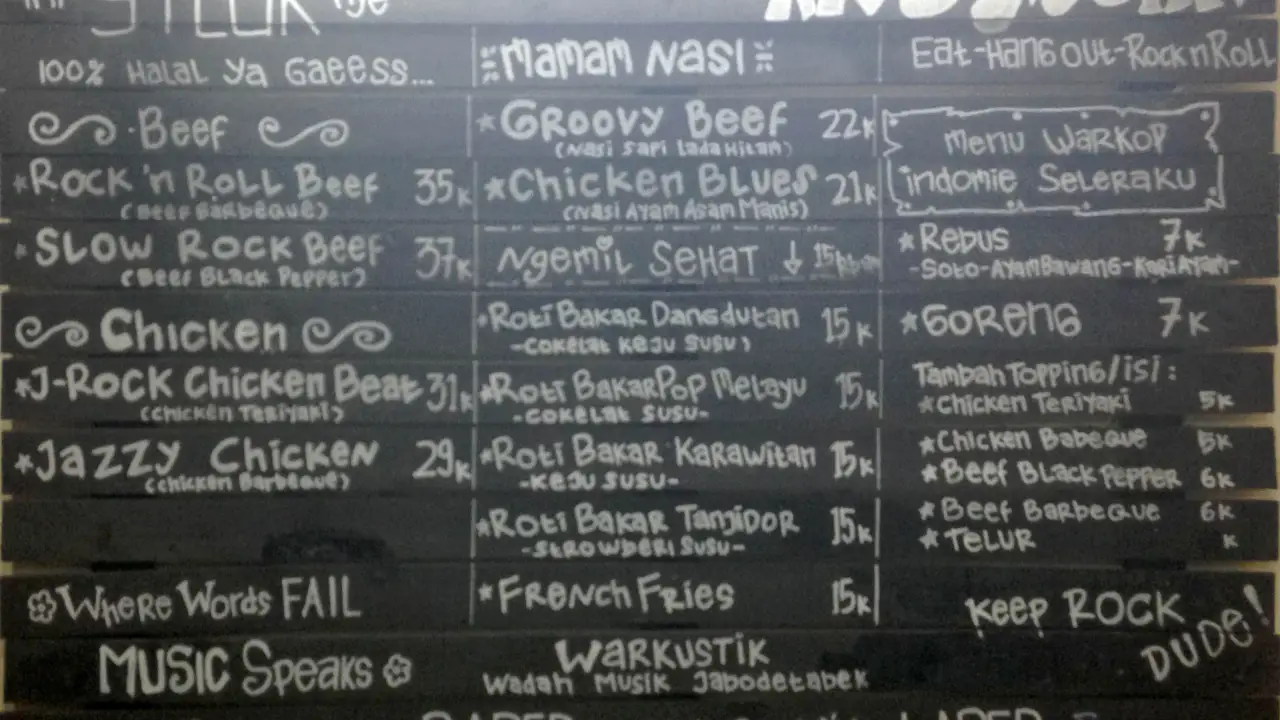 100% Halal Ya Gaeess...
Beef
Rock 'n Roll Beef 35K
(Beef Barbeque)
Slow Rock Beef 37K
(Beef Black Pepper)
Chicken
J-Rock Chicken Beat 31K
(Chicken Teriyaki)
Jazzy Chicken 29K
(Chicken Barbeque)
Where Words FAIL
MUSIC Speaks
Mamam Nasi
Groovy Beef 22K
(Nasi Sapi Lada Hitam)
Chicken Blues 21K
(Nasi Ayam Asam Manis)
Ngemil Sehat ↓ 15K
Roti Bakar Dangdutan 15K
-Cokelat Keju Susu)
Roti Bakar Pop Melayu 15K
-Cokelat Susu-
Roti Bakar Karawitan 15K
-Keju Susu-
Roti Bakar Tanjidor 15K
-Strowberi Susu-
French Fries 15K
Warkustik
Wadah Musik Jabodetabek
Eat-Hang out-Rock n Roll
Menu Warkop
indomie Seleraku
Rebus 7K
-Soto-Ayam Bawang-Kari Ayam-
Goreng 7K
Tambah Topping/isi:
Chicken Teriyaki 5K
Chicken Babeque 5K
Beef Black Pepper 6K
Beef Barbeque 6K
Telur K
Keep ROCK
DUDE!